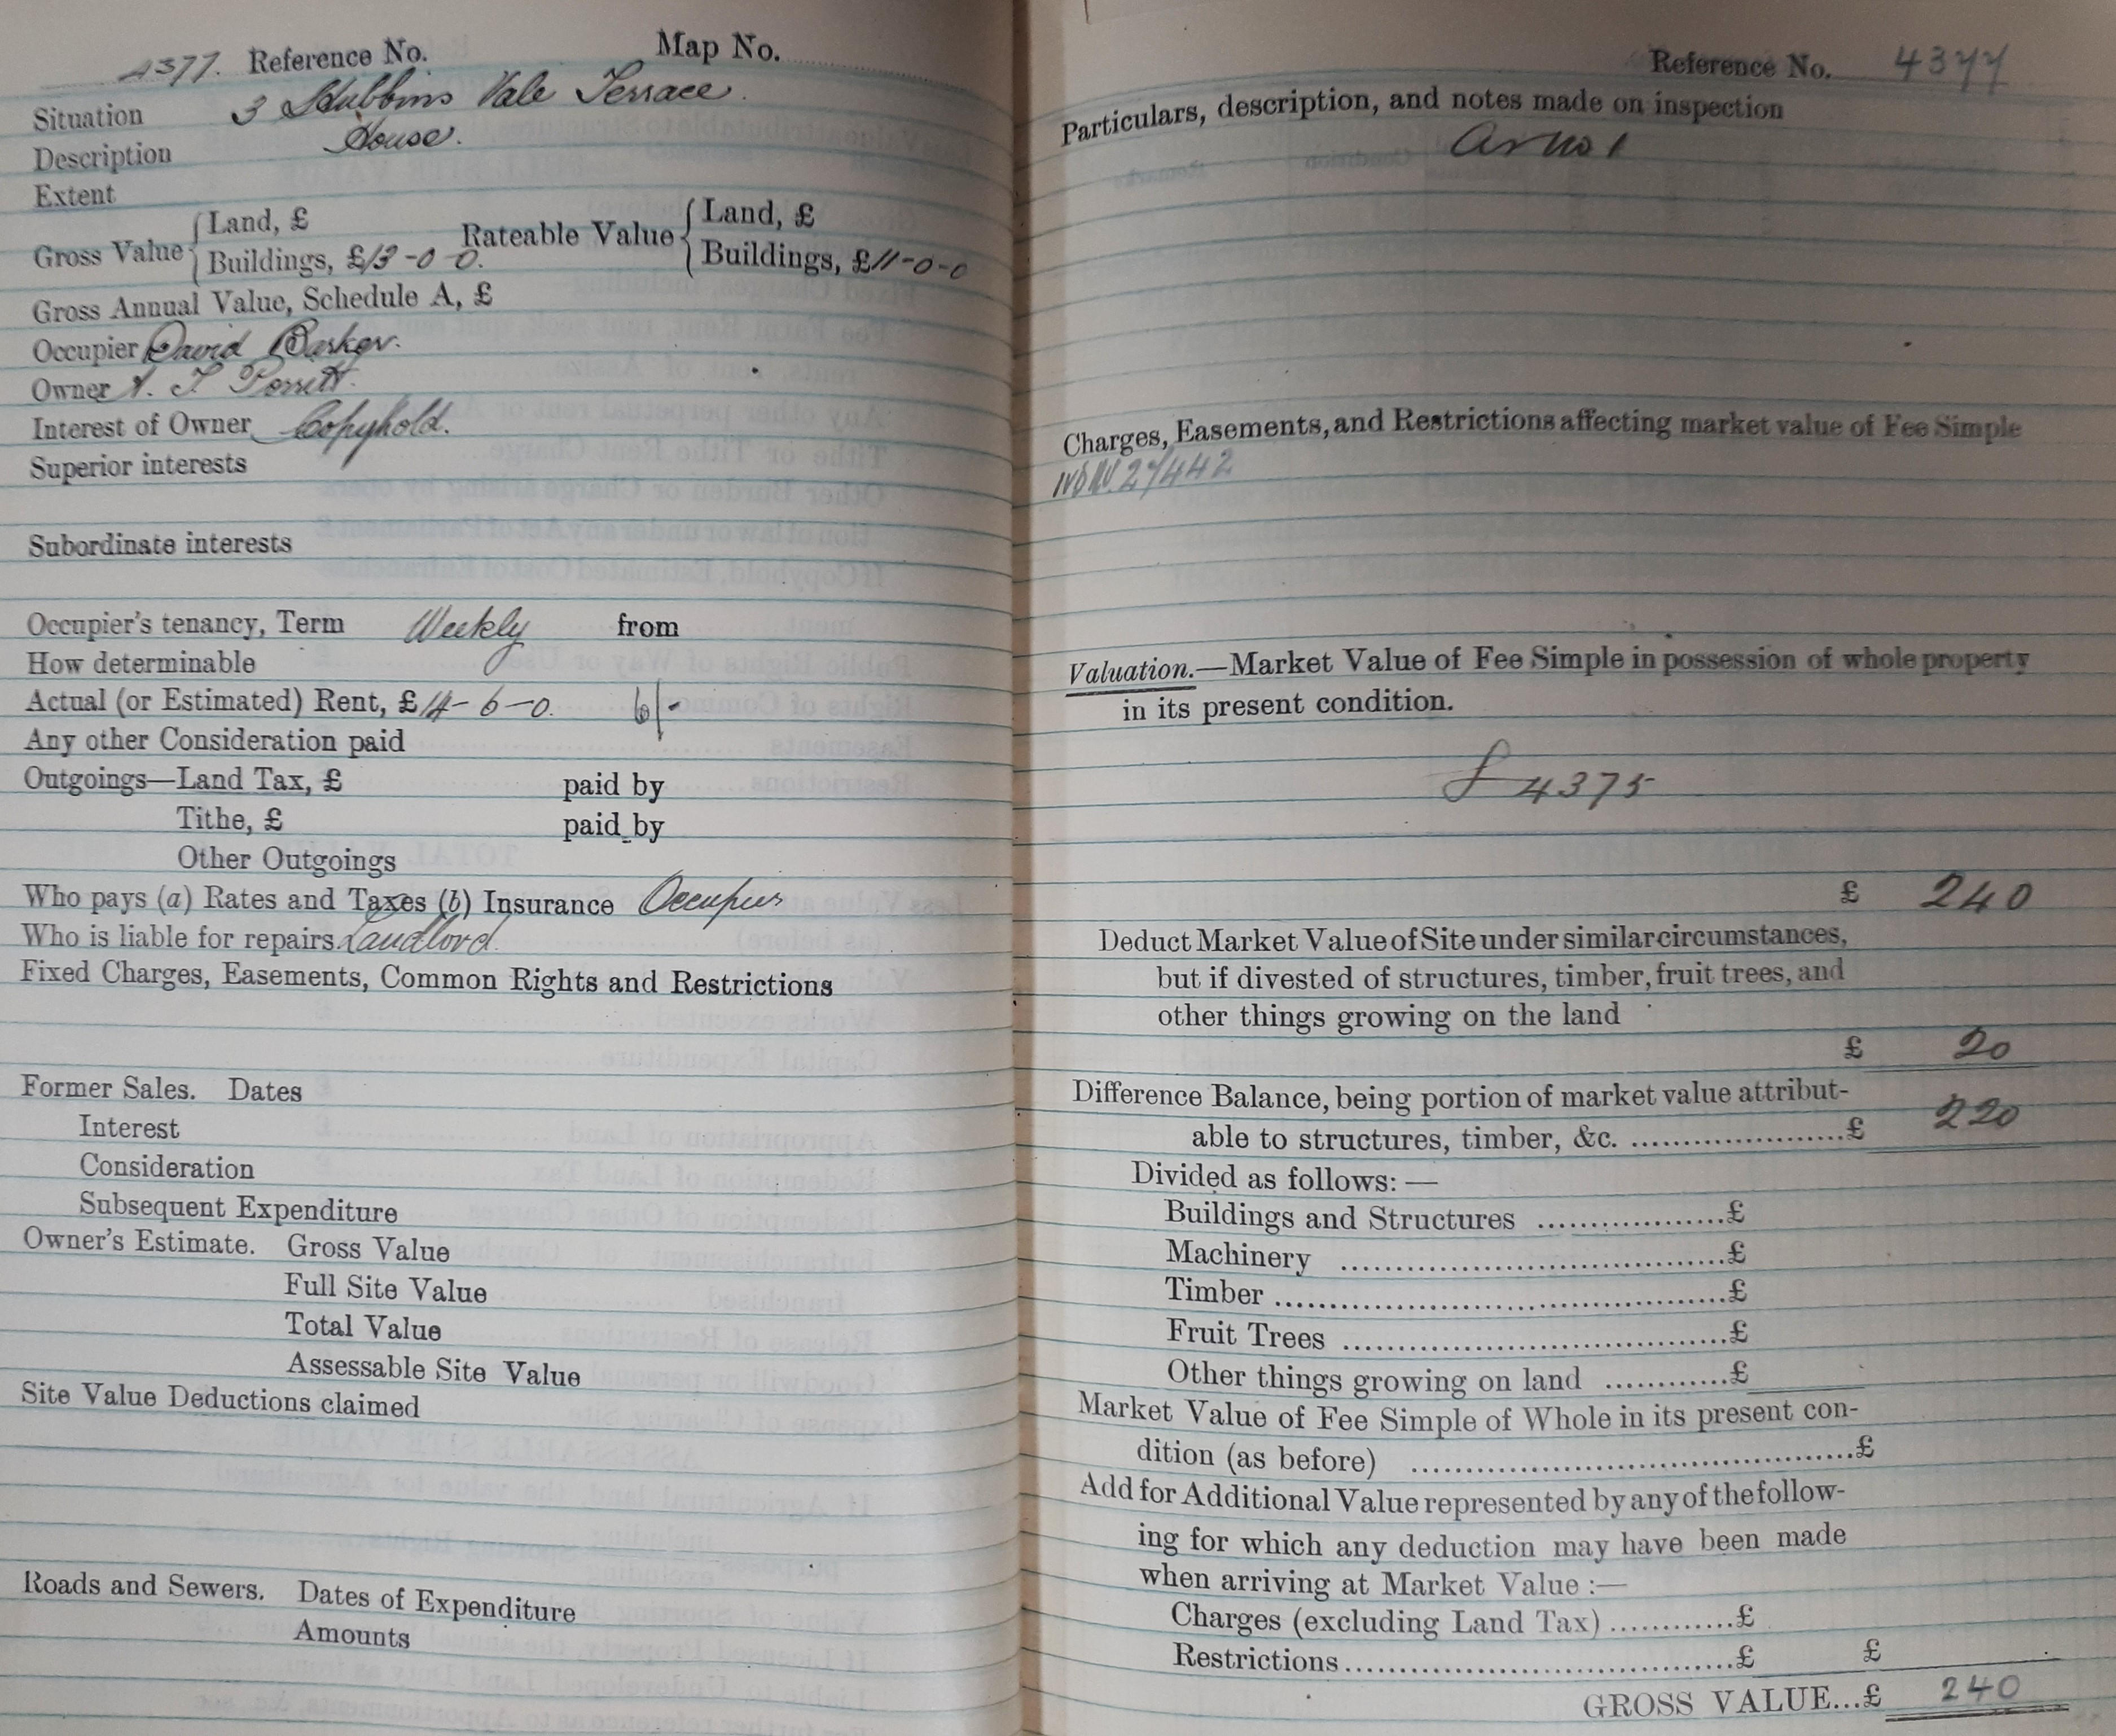 4377. Reference No. Map No.
Situation 3 Stubbins Vale Terrace.
Description House.
Extent
Gross Value { Land, £ Rateable Value { Land, £
Buildings, £13-0-0. Buildings, £11-0-0
Gross Annual Value, Schedule A, £
Occupier David Barker.
Owner T Porritt.
Interest of Owner Copyhold.
Superior interests
Subordinate interests
Occupier's tenancy, Term Weekly from
How determinable
Actual (or Estimated) Rent, £14-6-0. 6/-
Any other Consideration paid
Outgoings—Land Tax, £ paid by
Tithe, £ paid by
Other Outgoings
Who pays (a) Rates and Taxes (b) Insurance Occupier
Who is liable for repairs Landlord.
Fixed Charges, Easements, Common Rights and Restrictions
Former Sales. Dates
Interest
Consideration
Subsequent Expenditure
Owner's Estimate. Gross Value
Full Site Value
Total Value
Assessable Site Value
Site Value Deductions claimed
Roads and Sewers. Dates of Expenditure
Amounts
Reference No. 4377
Particulars, description, and notes made on inspection
Charges, Easements, and Restrictions affecting market value of Fee Simple
Valuation.—Market Value of Fee Simple in possession of whole property
in its present condition.
£ 4375
£ 240
Deduct Market Value of Site under similar circumstances,
but if divested of structures, timber, fruit trees, and
other things growing on the land
£ 20
Difference Balance, being portion of market value attribut-
able to structures, timber, &c. ....................£ 220
Divided as follows: —
Buildings and Structures ..................£
Machinery ....................................£
Timber ..........................................£
Fruit Trees ....................................£
Other things growing on land ............£
Market Value of Fee Simple of Whole in its present con-
dition (as before) ..........................................£
Add for Additional Value represented by any of the follow-
ing for which any deduction may have been made
when arriving at Market Value :—
Charges (excluding Land Tax) ............£
Restrictions ....................................£ £
GROSS VALUE...£ 240